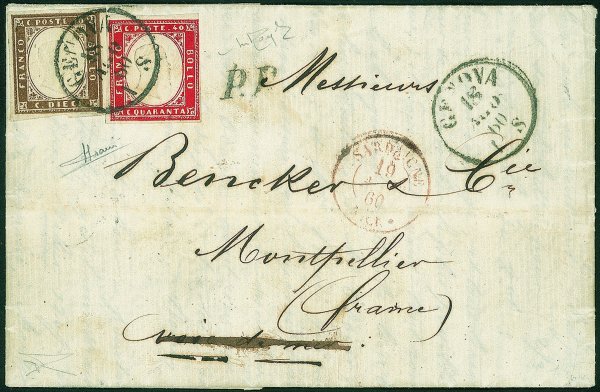 C. POSTE
FRANCO
BOLLO
C. DIECI
C. POSTE. 40
FRANCO
BOLLO
C. QUARANTA
GENOVA
P.P.
GENOVA
18
AGO
60
S
Messieurs
SARDAIGNE
19
60
Bencker & Cie
Montpellier
(france)
voie de mer